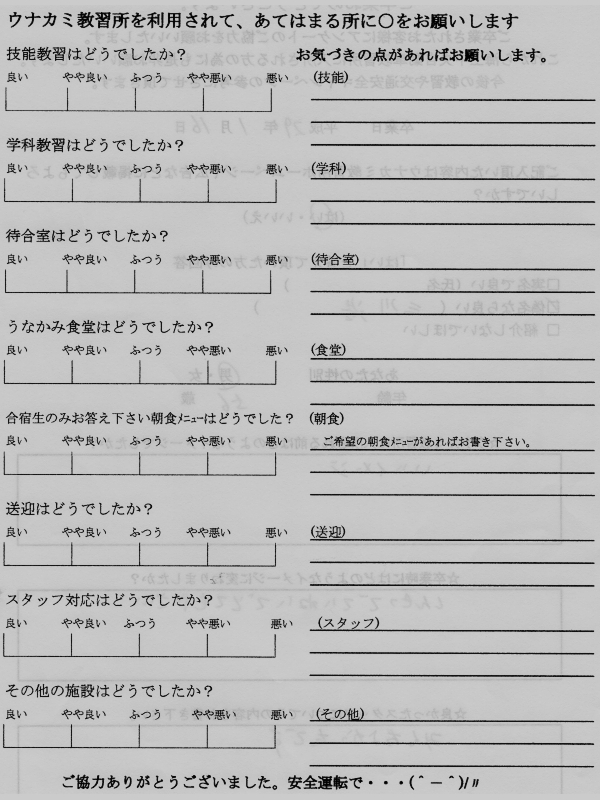 ウナカミ教習所を利用されて、あてはまる所に〇をお願いします
技能教習はどうでしたか？ お気づきの点があればお願いします。
良い やや良い ふつう やや悪い 悪い (技能)
学科教習はどうでしたか？
良い やや良い ふつう やや悪い 悪い (学科)
待合室はどうでしたか？
良い やや良い ふつう やや悪い 悪い (待合室)
うなかみ食堂はどうでしたか？
良い やや良い ふつう やや悪い 悪い (食堂)
合宿生のみお答え下さい朝食ﾒﾆｭｰはどうでしたか？ (朝食)
良い やや良い ふつう やや悪い 悪い ご希望の朝食ﾒﾆｭｰがあればお書き下さい。
送迎はどうでしたか？
良い やや良い ふつう やや悪い 悪い (送迎)
スタッフ対応はどうでしたか？
良い やや良い ふつう やや悪い 悪い (スタッフ)
その他の施設はどうでしたか？
良い やや良い ふつう やや悪い 悪い (その他)
ご協力ありがとうございました。安全運転で・・・(＾－＾)/〃